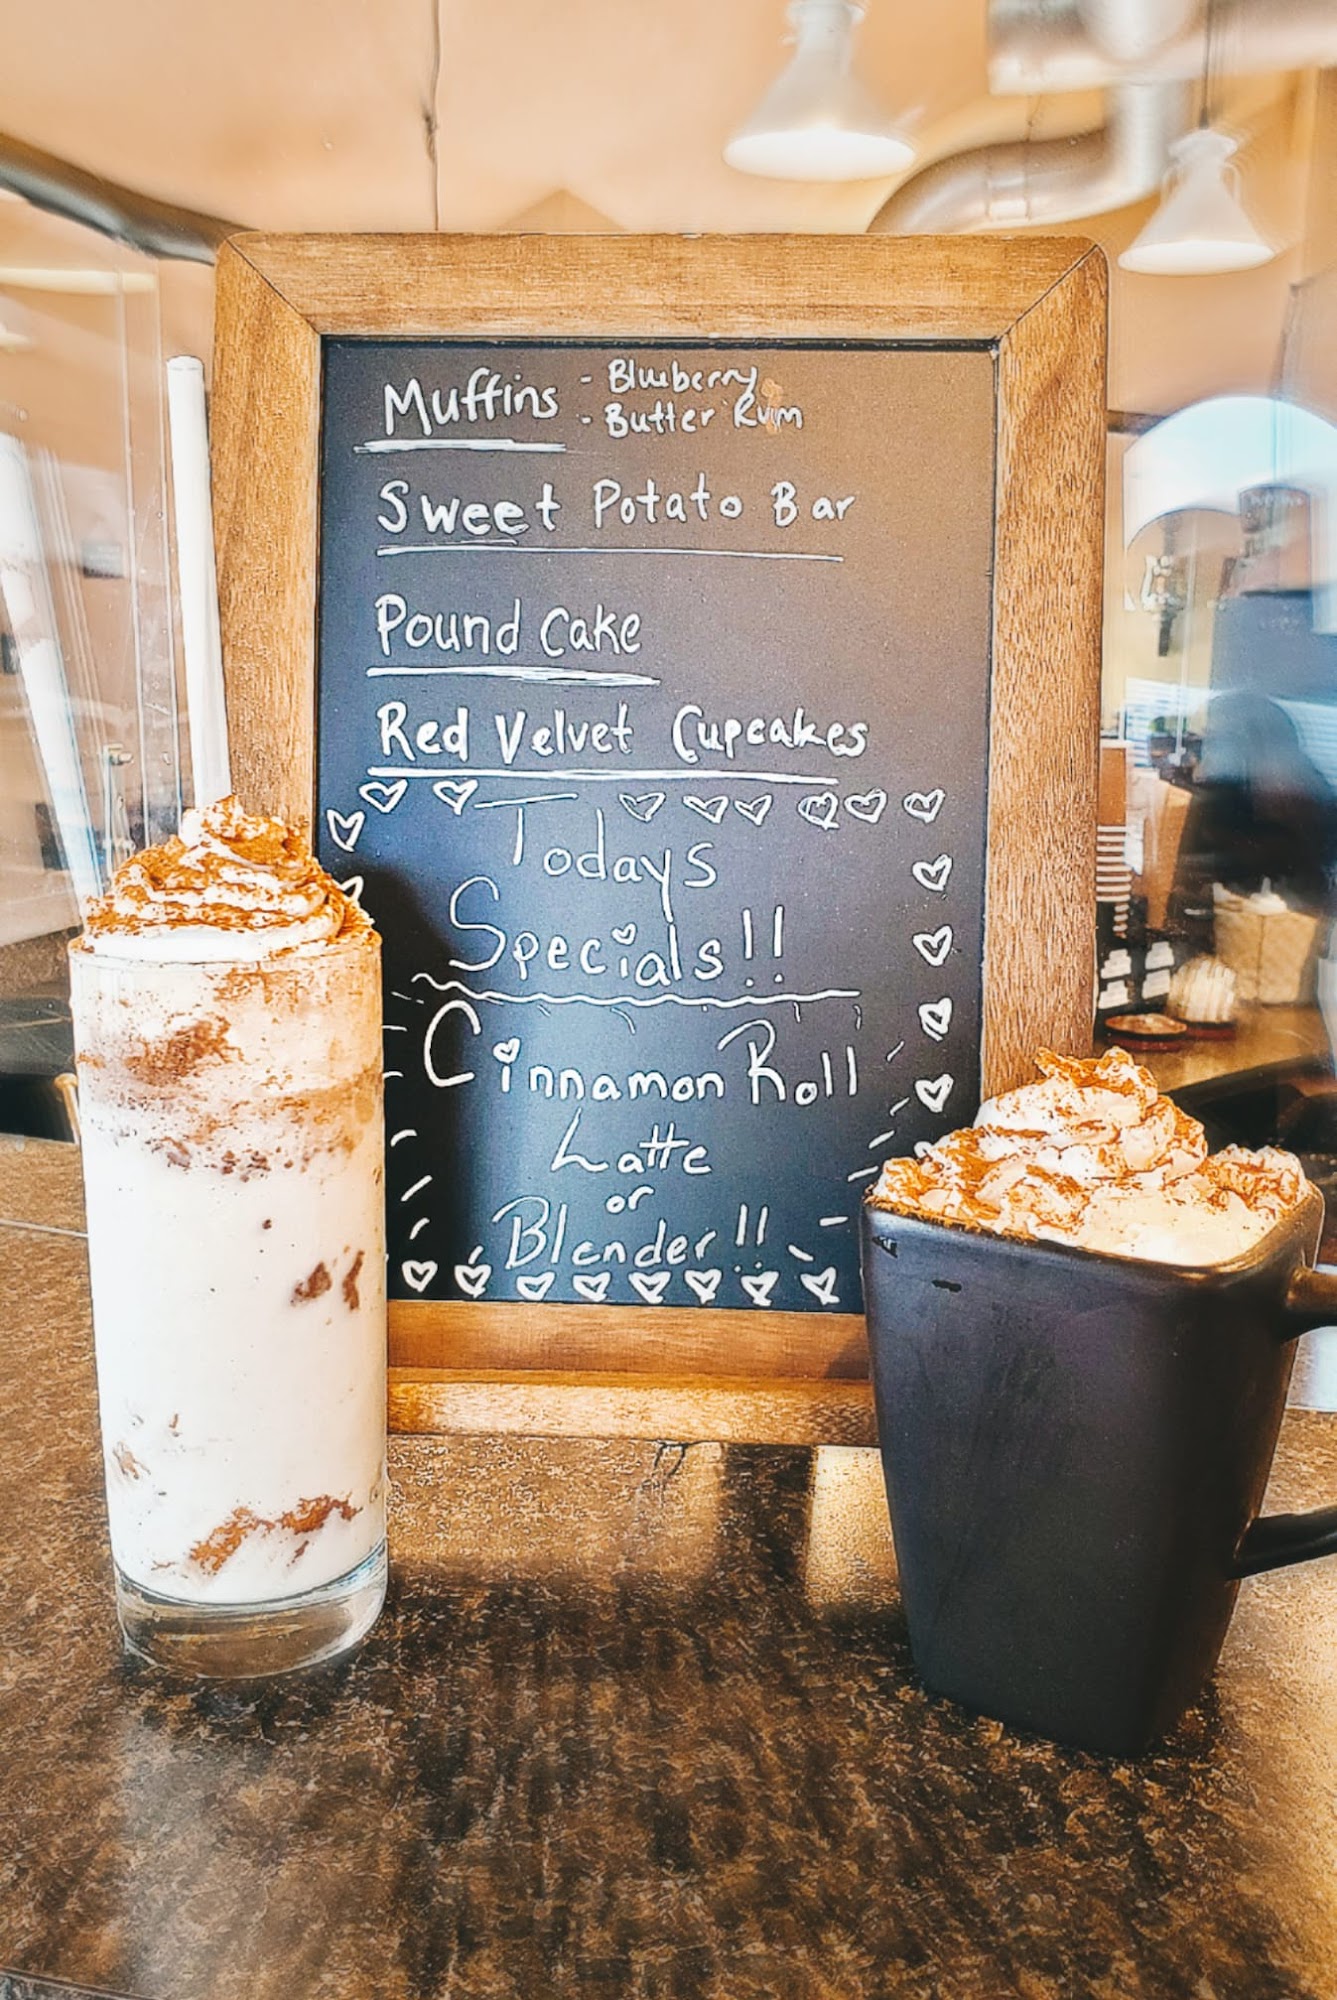 Muffins - Blueberry
- Butter Rum
Sweet Potato Bar
Pound Cake
Red Velvet Cupcakes
Todays
Specials!!
Cinnamon Roll
Latte
or
Blender!!